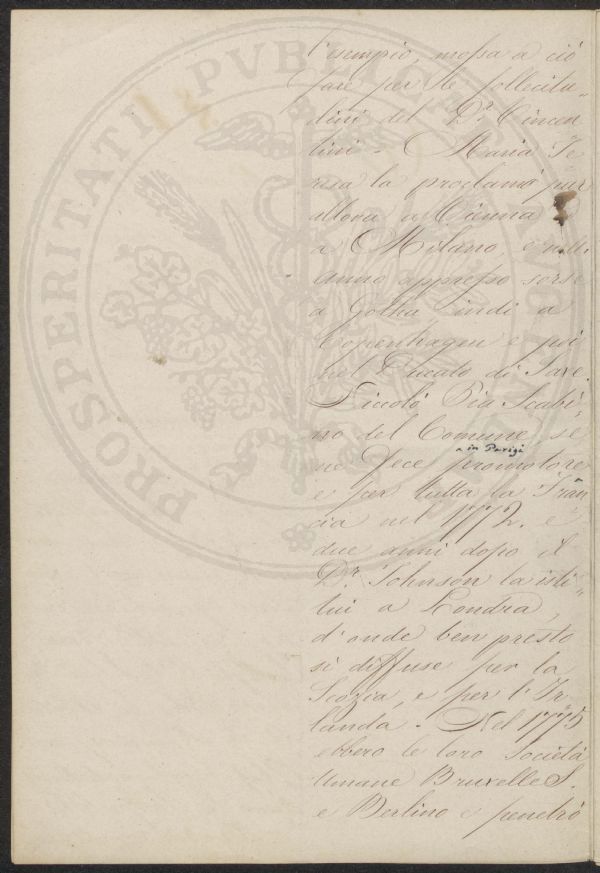 l'esempio, mossa a ciò
fare per le sollecitu„
dini del Dr. Vincen
tini. Maria Te
resa la proclamò pur
allora a Vienna
a Milano, e nell'
anno appresso sorse
a Gotha indi a
Copenhagen e poi
nel Ducato di Saxe.
Niccolò Pia Scabi„
no del Comune, se
a in Parigi
ne fece promotore
e per tutta la Fran
cia nel 1772. e
due anni dopo il
Dr. Johnson la isti„
tuì a Londra,
d'onde ben presto
si diffuse per la
Scozia, e per l'Ir
landa. Nel 1775
ebbero le loro Società
Umane Bruxelles.
e Berlino e penetrò
PROSPERITATI PVBLICAE